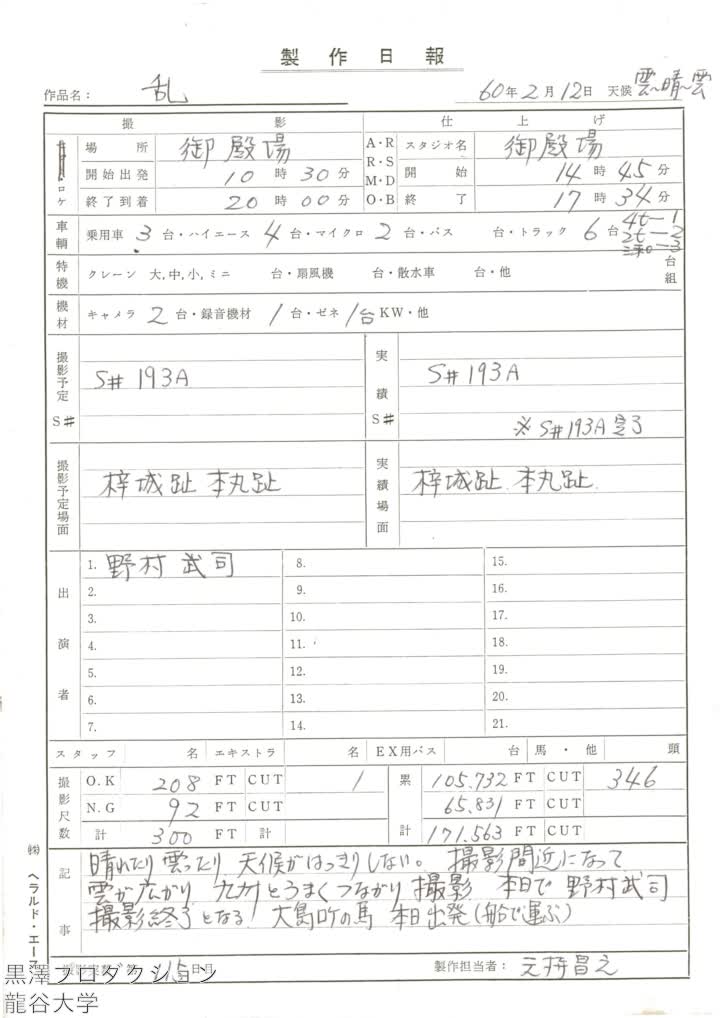 製作日報
作品名： 乱 60年2月12日 天候 雲〜晴〜雲
撮影 仕上げ
ロケ 場所 御殿場 A・R R・S M・D O・B スタジオ名 御殿場
開始出発 10時30分 開始 14時45分
終了到着 20時00分 終了 17時34分
車輌 乗用車 3台・ハイエース 4台・マイクロ 2台・バス 台・トラック 6台 4t-1 2t-2
特機 クレーン 大,中,小,ミニ 台・扇風機 台・散水車 台・他 台組
機材 キャメラ 2台・録音機材 1台・ゼネ 1台 KW・他
撮影予定 S# S# 193A 実績 S# S# 193A
※ S# 193A 完了
撮影予定場面 梓城趾 本丸趾 実績場面 梓城趾 本丸趾
出演者
1. 野村武司 8. 15.
2. 9. 16.
3. 10. 17.
4. 11. 18.
5. 12. 19.
6. 13. 20.
7. 14. 21.
スタッフ 名 エキストラ 名 EX用バス 台 馬・他 頭
撮影尺数 O.K 208 FT CUT 1 累計 105.732 FT CUT 346
N.G 92 FT CUT 65.831 FT CUT
計 300 FT 計 171.563 FT CUT
記事 晴れたり雲ったり 天候がはっきりしない。 撮影間近になって
雲が広がり 九州とうまくつながり撮影 本日で 野村武司
撮影終了となる 大島ロケの馬 本日出発(船で運ぶ)
115日目 製作担当者： 元持昌之
㈱ヘラルド・エース
黒澤プロダクション
龍谷大学